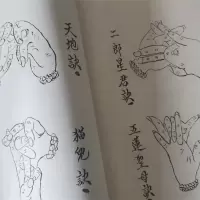 二郎星君訣
五蓮聖母訣
天地訣
猫兒訣